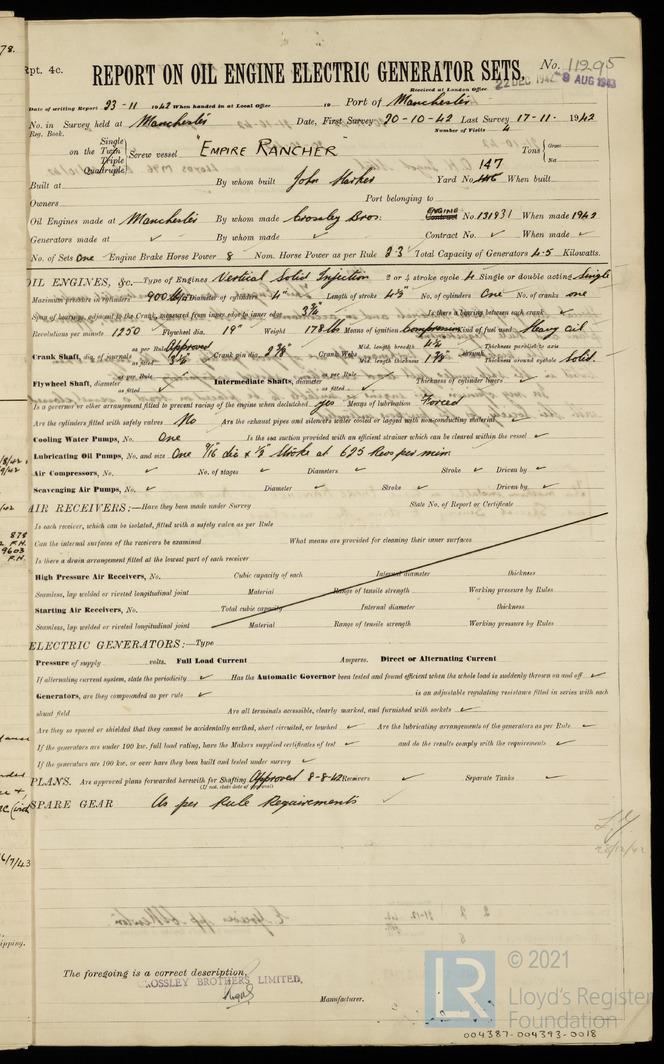 78.
Rpt. 4c.
REPORT ON OIL ENGINE ELECTRIC GENERATOR SETS.
No. 11295
Received at London Office
22 DEC 1942
9 AUG 1943
Date of writing Report 23-11 1942 When handed in at Local Office 19 Port of Manchester
No. in Survey held at Manchester Date, First Survey 20-10-42 Last Survey 17-11-1942
Reg. Book. Number of Visits 4
on the Single Twin Triple Quadruple Screw vessel "EMPIRE RANCHER" Tons Gross Net
Built at By whom built John Harker Yard No. 146 147 When built
Owners Port belonging to
Oil Engines made at Manchester By whom made Crossley Bros: Contract ENGINE No. 131931 When made 1942
Generators made at ✓ By whom made ✓ Contract No. ✓ When made ✓
No. of Sets one Engine Brake Horse Power 8 Nom. Horse Power as per Rule 2.3 Total Capacity of Generators 4.5 Kilowatts.
OIL ENGINES, &c.—Type of Engines Vertical Solid Injection 2 or 4 stroke cycle 4 Single or double acting Single
Maximum pressure in cylinders 900 Diameter of cylinders 4" Length of stroke 4½" No. of cylinders One No. of cranks one
Span of bearings, adjacent to the Crank, measured from inner edge to inner edge 3¾" Is there a bearing between each crank ✓
Revolutions per minute 1250 Flywheel dia. 19" Weight 178 lbs Means of ignition Compression Kind of fuel used Heavy oil
Crank Shaft, dia. of journals as per Rule Approved as fitted Crank pin dia. Crank Webs Mid. length breadth Mid. length thickness Thickness parallel to axis shrunk Thickness around eyehole Solid.
Flywheel Shaft, diameter as per Rule as fitted ✓ Intermediate Shafts, diameter as per Rule as fitted ✓ Thickness of cylinder liners ✓
Is a governor or other arrangement fitted to prevent racing of the engine when declutched yes Means of lubrication Forced
Are the cylinders fitted with safety valves No Are the exhaust pipes and silencers water cooled or lagged with non-conducting material ✓
Cooling Water Pumps, No. One Is the sea suction provided with an efficient strainer which can be cleared within the vessel ✓
Lubricating Oil Pumps, No. and size One 9/16 dia x ½" Stroke at 625 Revs per min
Air Compressors, No. ✓ No. of stages ✓ Diameters ✓ Stroke ✓ Driven by ✓
Scavenging Air Pumps, No. ✓ Diameter ✓ Stroke ✓ Driven by ✓
AIR RECEIVERS:—Have they been made under Survey State No. of Report or Certificate
Is each receiver, which can be isolated, fitted with a safety valve as per Rule
Can the internal surfaces of the receivers be examined What means are provided for cleaning their inner surfaces
Is there a drain arrangement fitted at the lowest part of each receiver
High Pressure Air Receivers, No. Cubic capacity of each Internal diameter thickness
Seamless, lap welded or riveted longitudinal joint Material Range of tensile strength Working pressure by Rules
Starting Air Receivers, No. Total cubic capacity Internal diameter thickness
Seamless, lap welded or riveted longitudinal joint Material Range of tensile strength Working pressure by Rules
ELECTRIC GENERATORS:—Type
Pressure of supply volts. Full Load Current Amperes. Direct or Alternating Current
If alternating current system, state the periodicity ✓ Has the Automatic Governor been tested and found efficient when the whole load is suddenly thrown on and off ✓
Generators, are they compounded as per rule ✓ is an adjustable regulating resistance fitted in series with each
shunt field Are all terminals accessible, clearly marked, and furnished with sockets ✓
Are they so spaced or shielded that they cannot be accidentally earthed, short circuited, or touched ✓ Are the lubricating arrangements of the generators as per Rule ✓
If the generators are under 100 kw. full load rating, have the Makers supplied certificates of test ✓ and do the results comply with the requirements ✓
If the generators are 100 kw. or over have they been built and tested under survey ✓
PLANS. Are approved plans forwarded herewith for Shafting Approved 8-8-42 Receivers ✓ Separate Tanks ✓
(If not, state date of approval)
SPARE GEAR As per Rule Requirements
The foregoing is a correct description,
CROSSLEY BROTHERS LIMITED,
Manufacturer.
LR
© 2021
Lloyd's Register
Foundation
004387-004393-0018